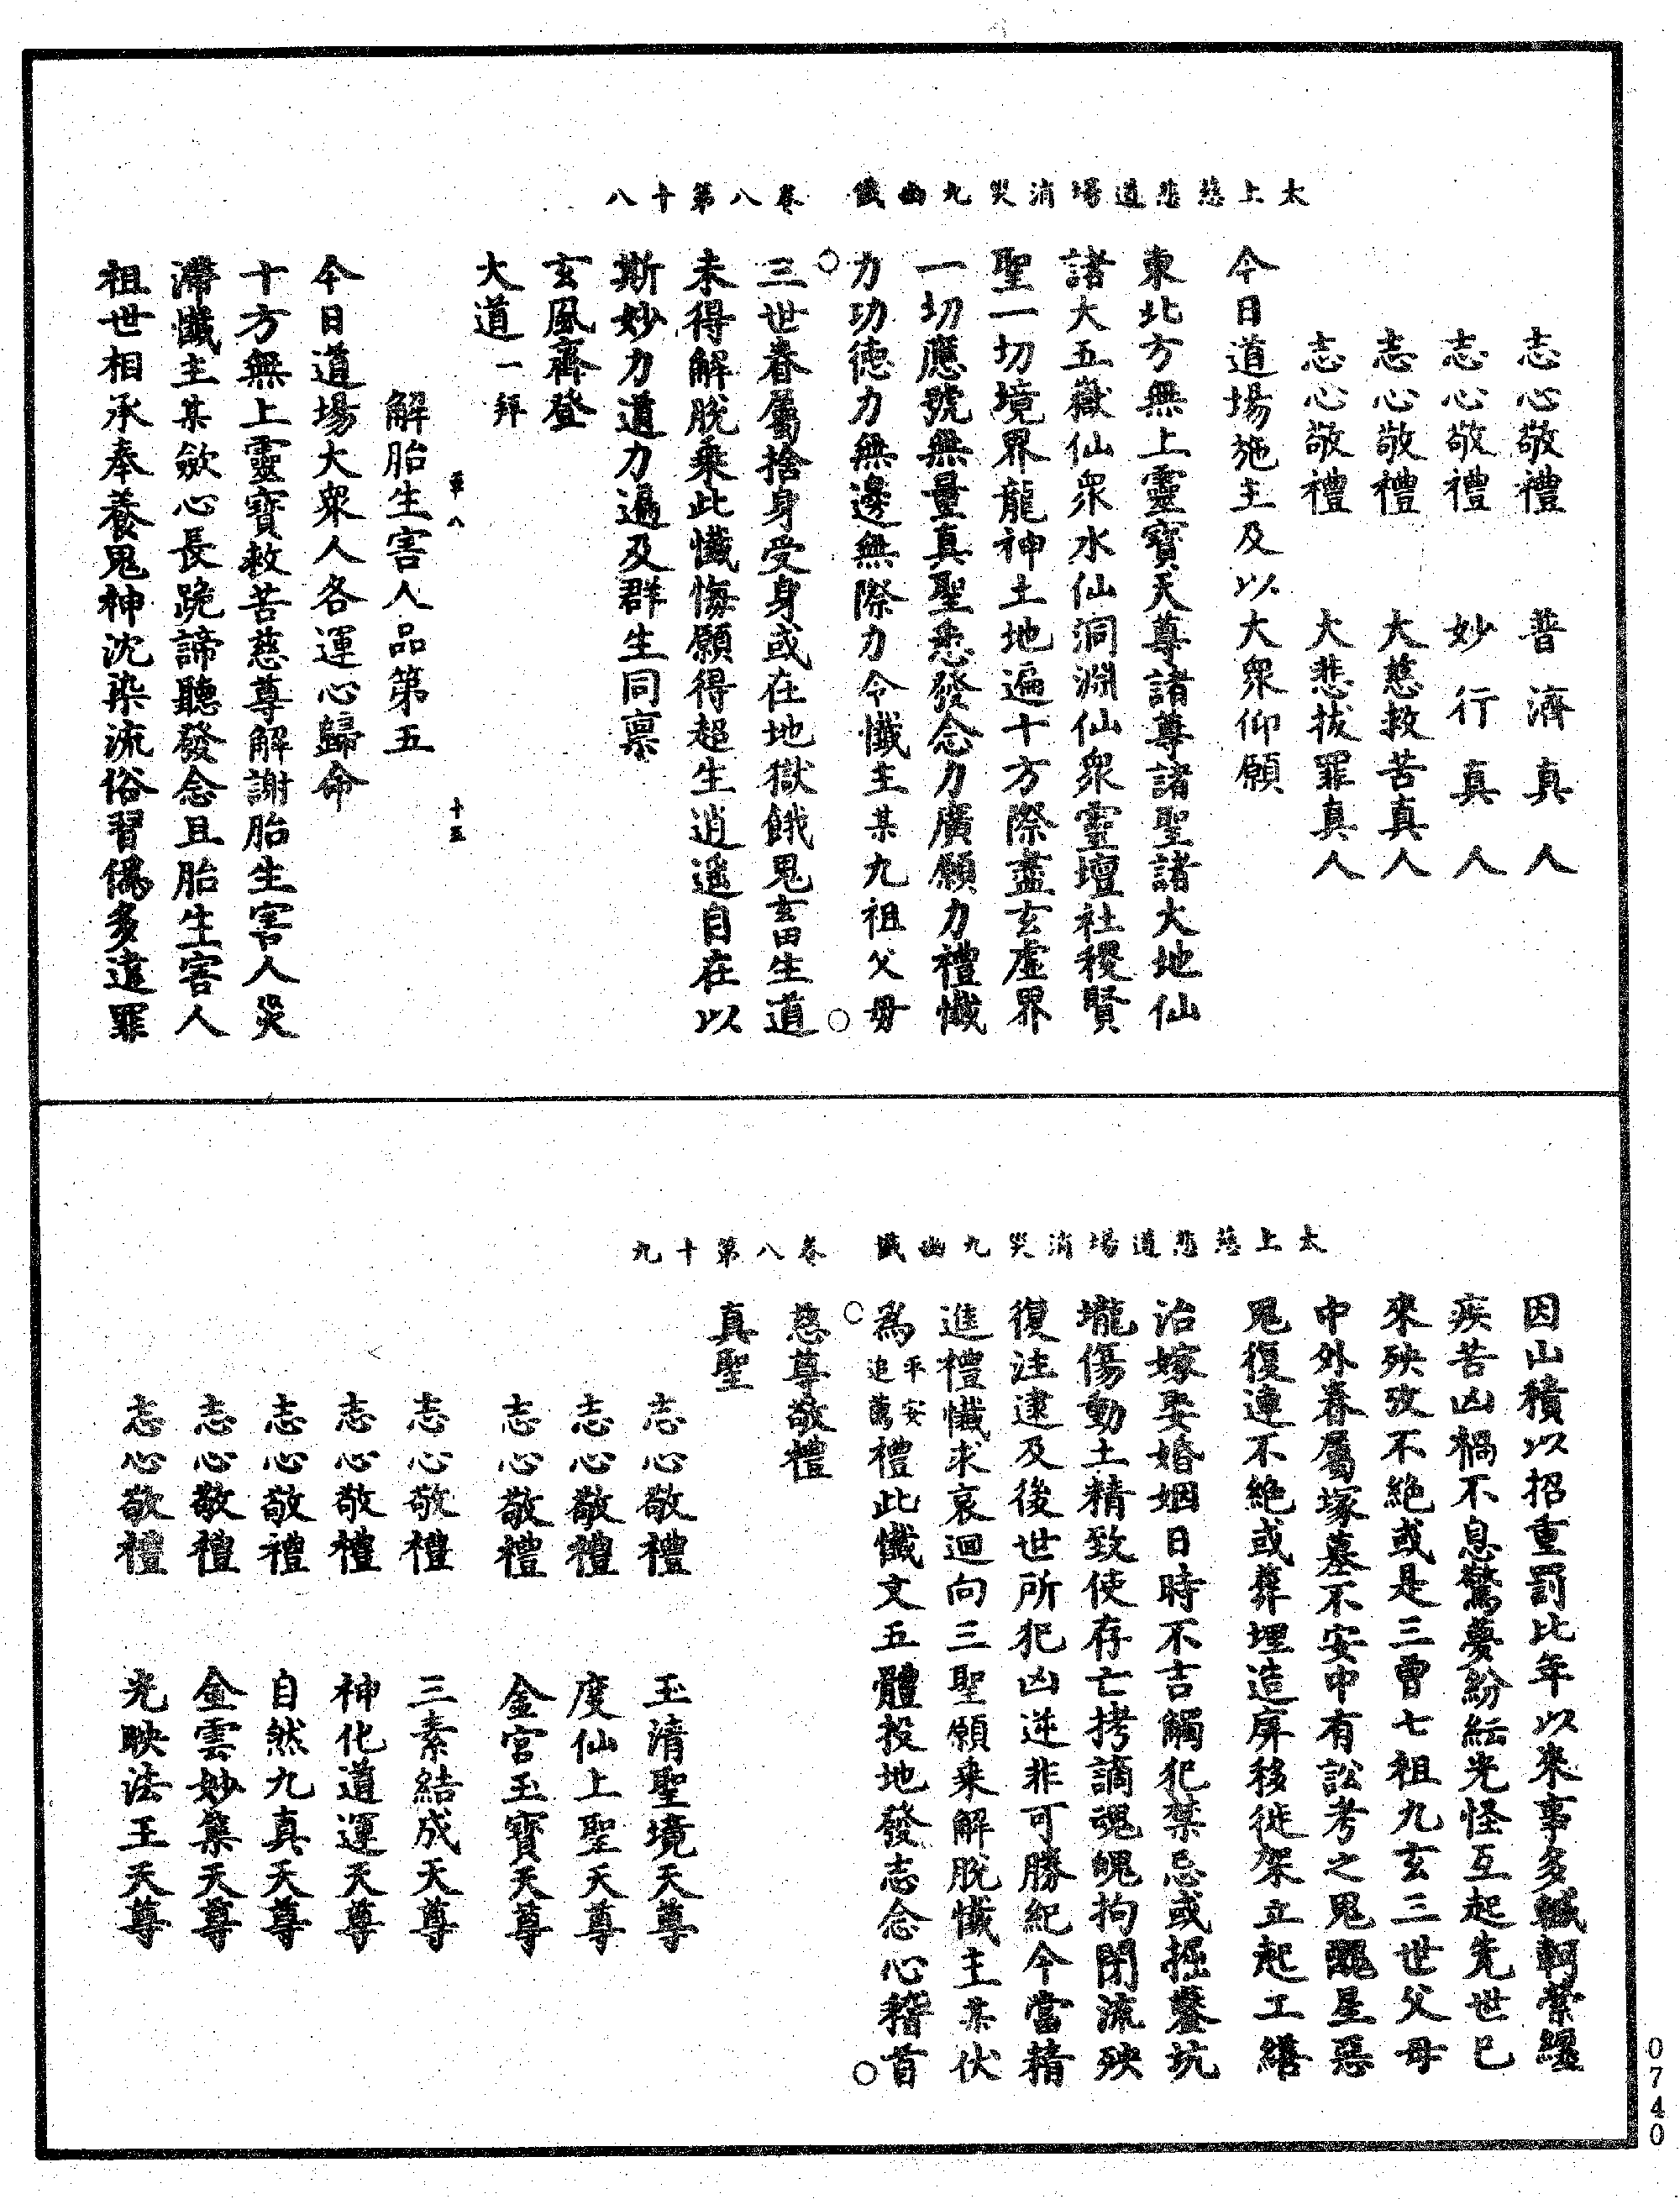 太上慈悲道場消災九幽懺　卷八第十八
志心敬禮　普濟真人
志心敬禮　妙行真人
志心敬禮　大慈救苦真人
志心敬禮　大悲拔罪真人
今日道場施主及以大衆仰願
東北方無上靈寶天尊諸尊諸聖諸大地仙
諸大五嶽仙衆水仙洞淵仙衆靈壇社稷賢
聖一切境界龍神土地遍十方際盡玄虛界
一切應號無量真聖悉發念力廣願力禮懺
力功德力無邊無際力令懺主某九祖父母
三世眷屬捨身受身或在地獄餓鬼畜生道
未得解脫乗此懺悔願得超生逍遥自在以
斯妙力道力遍及群生同稟
玄風齊登
大道一拜
草八　十五
解胎生害人品第五
今日道場大衆人各運心歸命
十方無上靈寶救苦慈尊解謝胎生害人災
滯懺主某斂心長跪諦聽發念且胎生害人
祖世相承奉養鬼神沈染流俗習偽多違罪
太上慈悲道場消災九幽懺　卷八第十九
因山積以招重罰比年以來事多轗軻縈纏
疾苦凶禍不息驚夢紛紜光怪互起先世已
來殃攻不絕或是三曽七祖九玄三世父母
中外眷屬塚墓不安中有訟考之鬼醜星惡
鬼復連不絕或葬埋造屏移徙架立起工繕
治嫁娶婚姻日時不吉觸犯禁忌或掘鑿坑
壠傷動土精致使存亡拷謫魂魄拘閉流殃
復注逮及後世所犯凶逆非可勝紀今當精
進禮懺求哀迴向三聖願乗解脫懺主某伏
為平安追薦禮此懺文五體投地發志念心稽首
慈尊敬禮
真聖
志心敬禮　玉清聖境天尊
志心敬禮　度仙上聖天尊
志心敬禮　金宮玉寶天尊
志心敬禮　三素結成天尊
志心敬禮　神化道運天尊
志心敬禮　自然九真天尊
志心敬禮　金雲妙集天尊
志心敬禮　光映法王天尊
0740